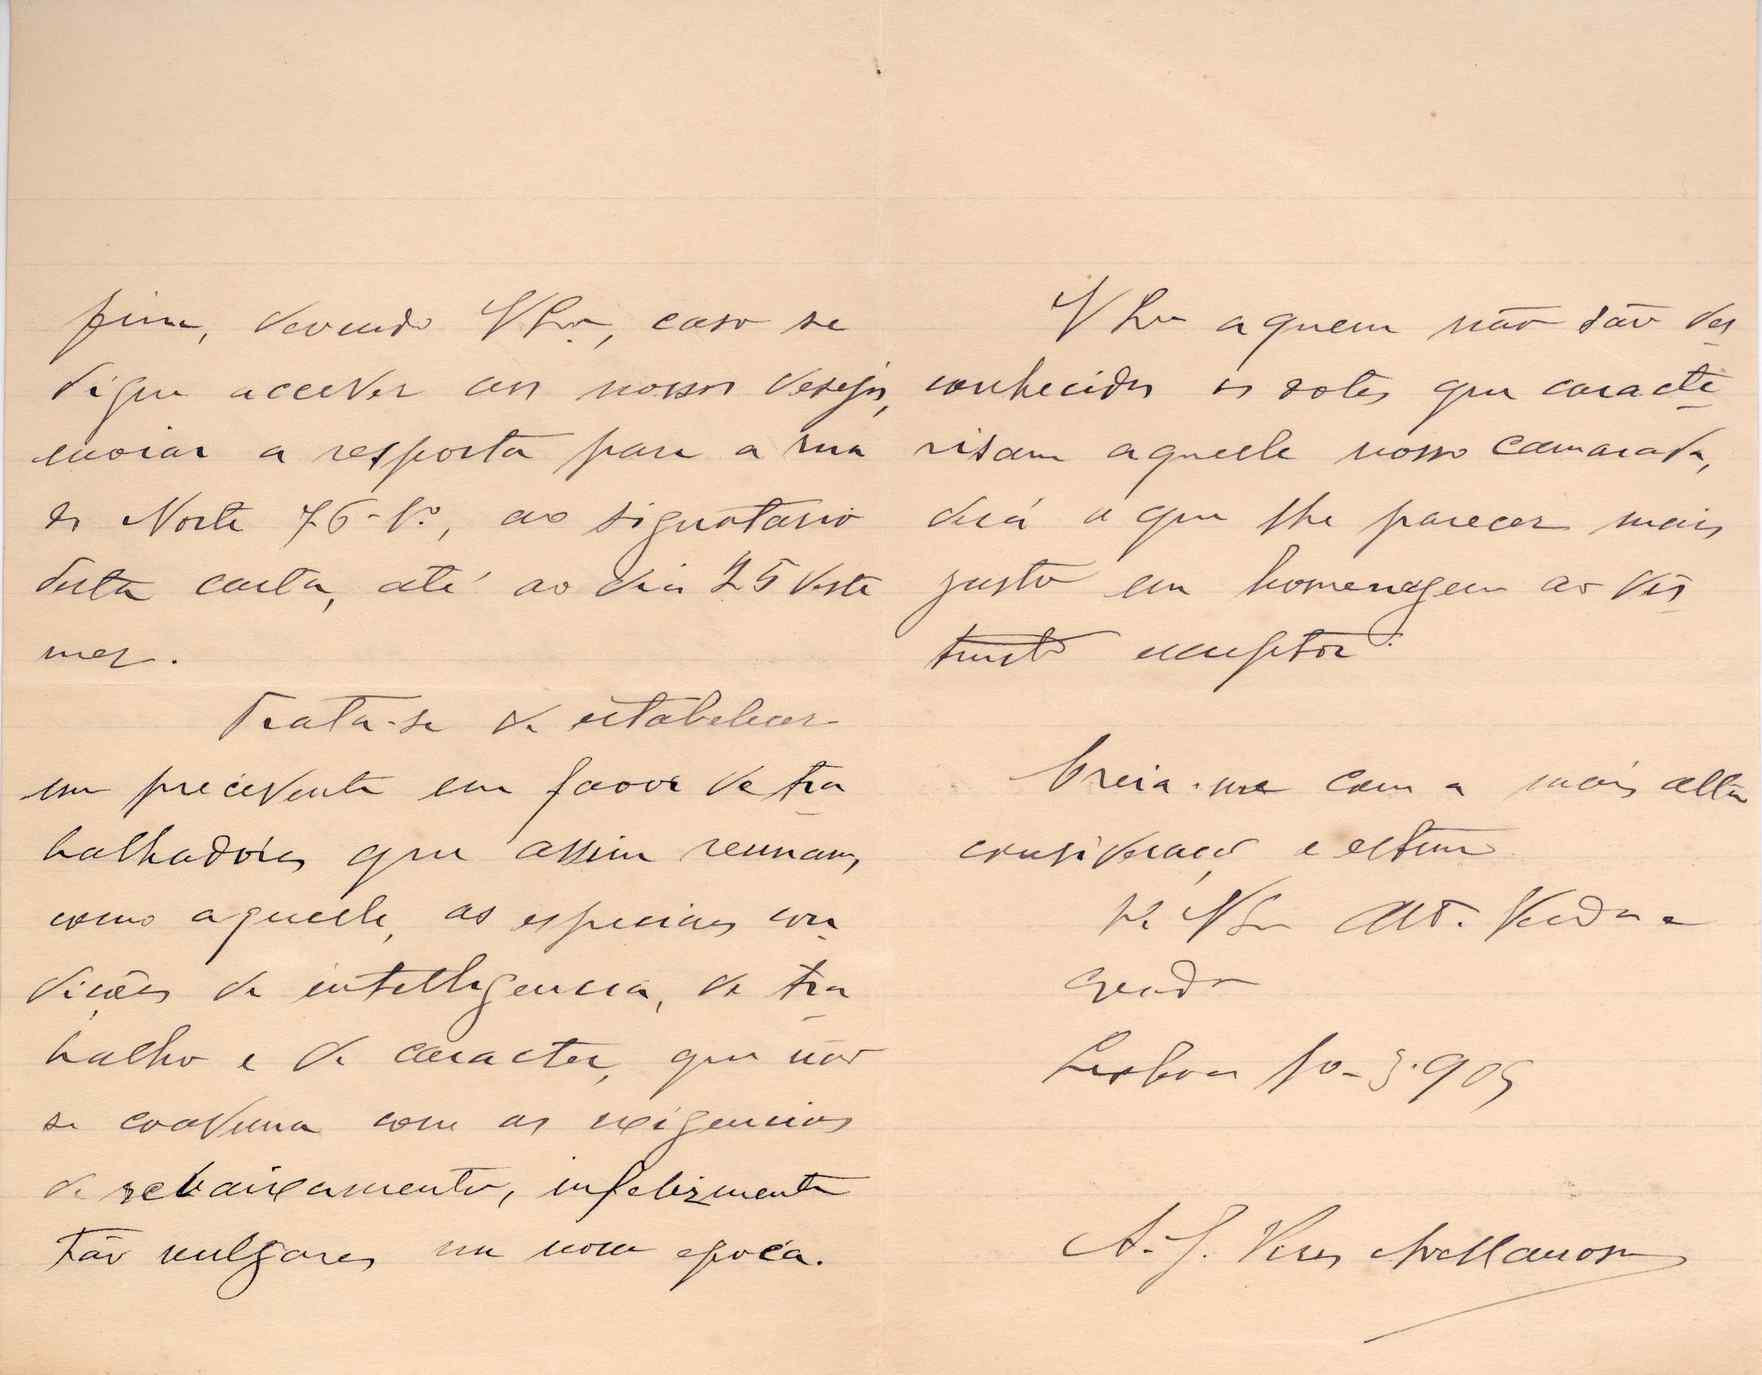 fim, devendo V Exa, caso se
digne acceder aos nossos desejos,
enviar a resposta para a rua
do Norte 76-1º, ao signatario
desta carta, até ao dia 25 deste
mez.
Trata-se de estabelecer
um precedente em favor de tra
balhadores que assim reunam,
como aquelle, as especiaes con
dicções de intelligencia, de tra
balho e de caracter, que não
se coaduna com as exigencias
de rebaixamento, infelizmente
tão vulgares na nossa epoca.
V Exa a quem não são des
conhecidos os dotes que caracte
risam aquelle nosso camarada,
dirá o que lhe parecer mais
justo em homenagem ao dis
tincto esculptor.
Creia-me com a mais alta
consideração e estima
De V Exa Att. Vendor e
creado
Lisboa 10-3-905
A. J.